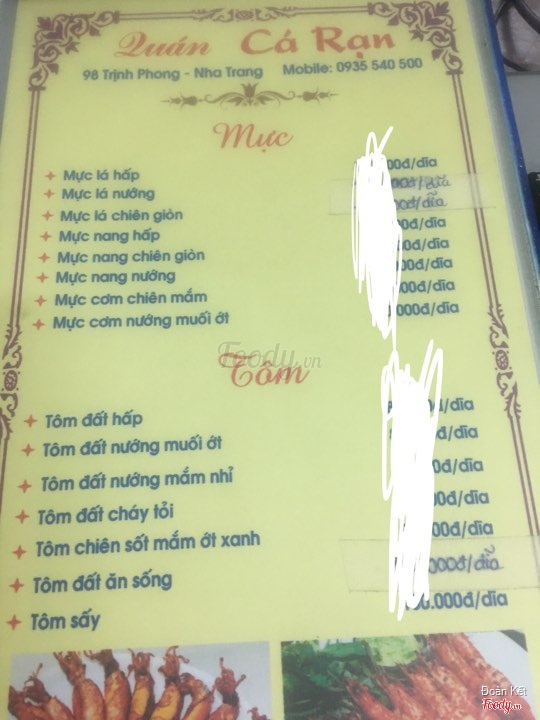 Quán Cá Rạn
98 Trịnh Phong - Nha Trang Mobile: 0935 540 500
Mực
Mực lá hấp 00đ/dĩa
Mực lá nướng 00đ/dĩa
Mực lá chiên giòn 00đ/dĩa
Mực nang hấp 00đ/dĩa
Mực nang chiên giòn 00đ/dĩa
Mực nang nướng 00đ/dĩa
Mực cơm chiên mắm 000đ/dĩa
Mực cơm nướng muối ớt 000đ/dĩa
Foody.vn
Tôm
Tôm đất hấp đ/dĩa
Tôm đất nướng muối ớt đ/dĩa
Tôm đất nướng mắm nhỉ đ/dĩa
Tôm đất cháy tỏi 0đ/dĩa
Tôm chiên sốt mắm ớt xanh 0đ/dĩa
Tôm đất ăn sống 000đ/dĩa
Tôm sấy 0.000đ/dĩa
Đoàn Kết
Foody.vn